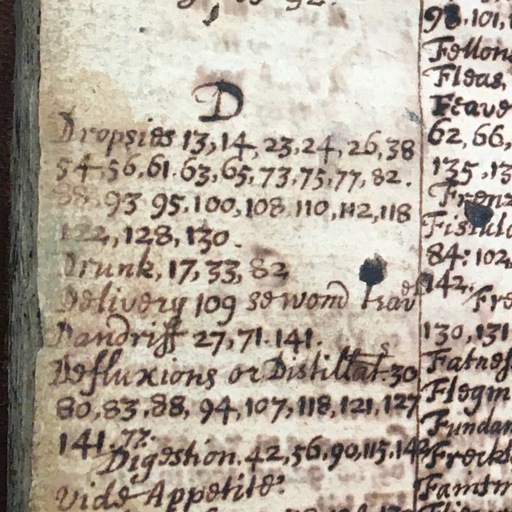 D
Dropsies 13, 14, 23, 24, 26, 38
54, 56, 61. 63, 65, 73, 75, 77, 82.
88, 93 95, 100, 108, 110, 112, 118
122, 128, 130.
Drunk, 17, 33, 82
Delivery 109 se wom̄
Dandriff 27, 71. 141.
Defluxions or Distillat.s 30
80, 83, 88, 94, 107, 118, 121, 127
141. 77.
Digestion. 42, 56, 90, 115, 142
vide Appetite.
98, 101,
Fellon
Fleas,
Feave
62, 66,
135, 13
Frenz
Fistula
84: 102,
142.
Fre
130, 131
Fatnes
Flegm
Fundam
Freckl